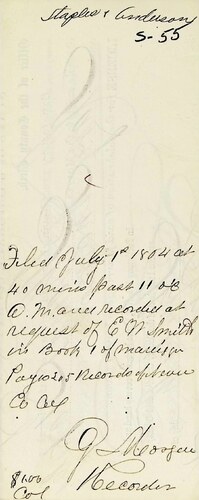 Staples & Anderson
S-55
Filed July 1st 1864 at
40 mins past 11 o'c
A. M. and recorded at
request of E W Smith
in Book 1 of marriage
Page 205 Records of
Co Cal
Morgan
Recorder
$1.00
Col